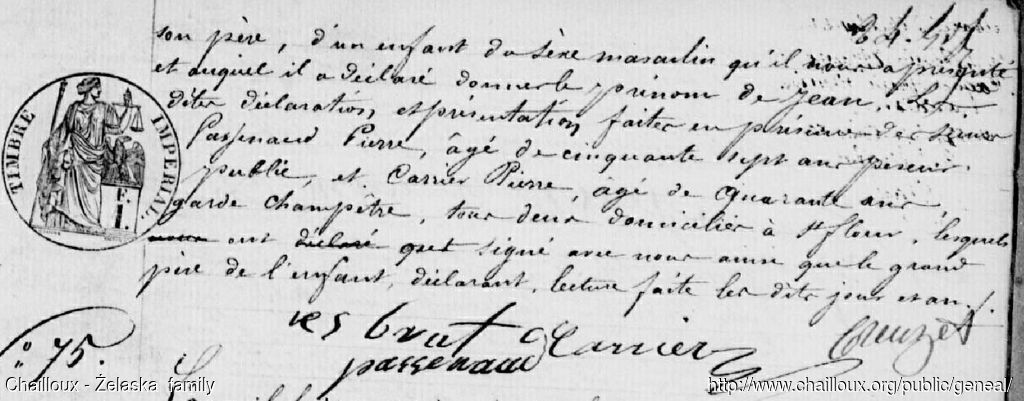 son père, d'un enfant du sèxe masculin qu'il nous a présenté
et auquel il a déclaré donner le prénom de Jean,
dites déclaration, et présentation faites en présence de
Passenaud Pierre, âgé de cinquante sept ans peseur
public, et Carrier Pierre âgé de quarante ans,
garde champètre, tous deux domiciliés à St flour, lesquels
ont déclaré et signé avec nous ainsi que le grand
père de l'enfant, déclarant, lecture faite les dits jour et an./.
Carrier
passenaud
Creuzet
TIMBRE IMPERIAL
F.
1.
No 75.
Chailloux - Želaska family
http://www.chailloux.org/public/geneal/